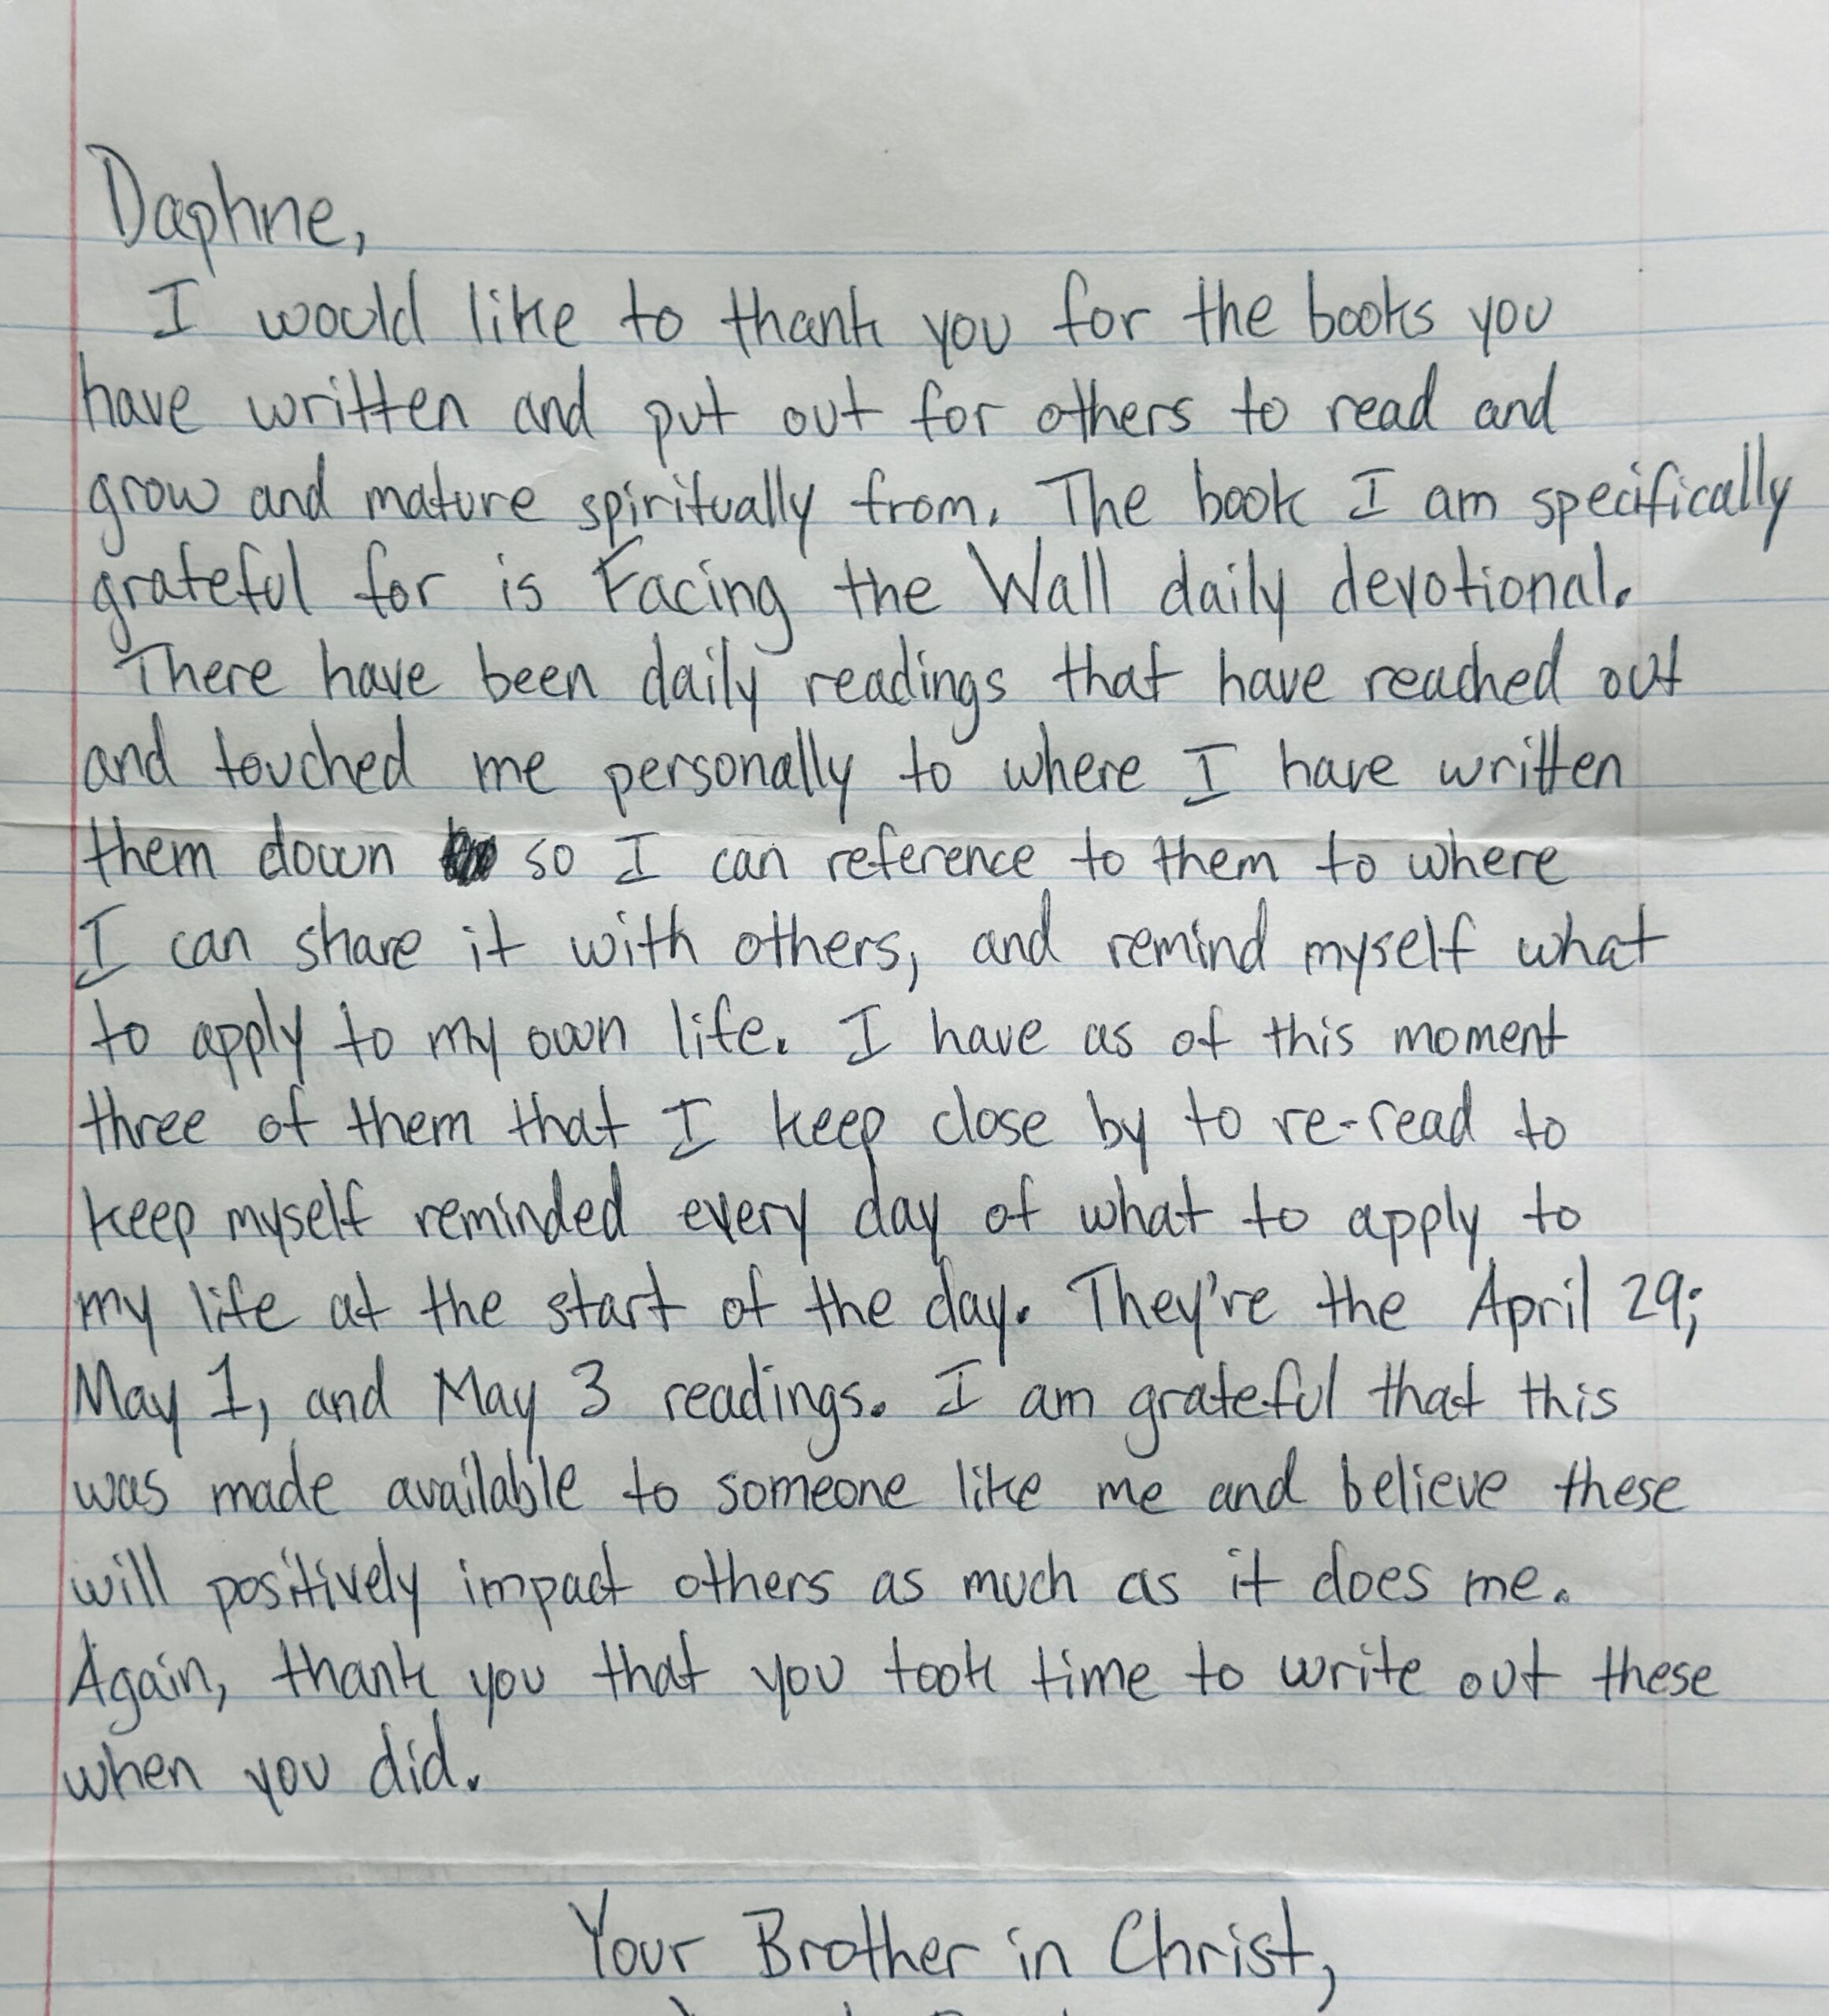 Daphne,
I would like to thank you for the books you
have written and put out for others to read and
grow and mature spiritually from. The book I am specifically
grateful for is Facing the Wall daily devotional.
There have been daily readings that have reached out
and touched me personally to where I have written
them down so I can reference to them to where
I can share it with others, and remind myself what
to apply to my own life. I have as of this moment
three of them that I keep close by to re-read to
keep myself reminded every day of what to apply to
my life at the start of the day. They're the April 29;
May 1, and May 3 readings. I am grateful that this
was made available to someone like me and believe these
will positively impact others as much as it does me.
Again, thank you that you took time to write out these
when you did.
Your Brother in Christ,